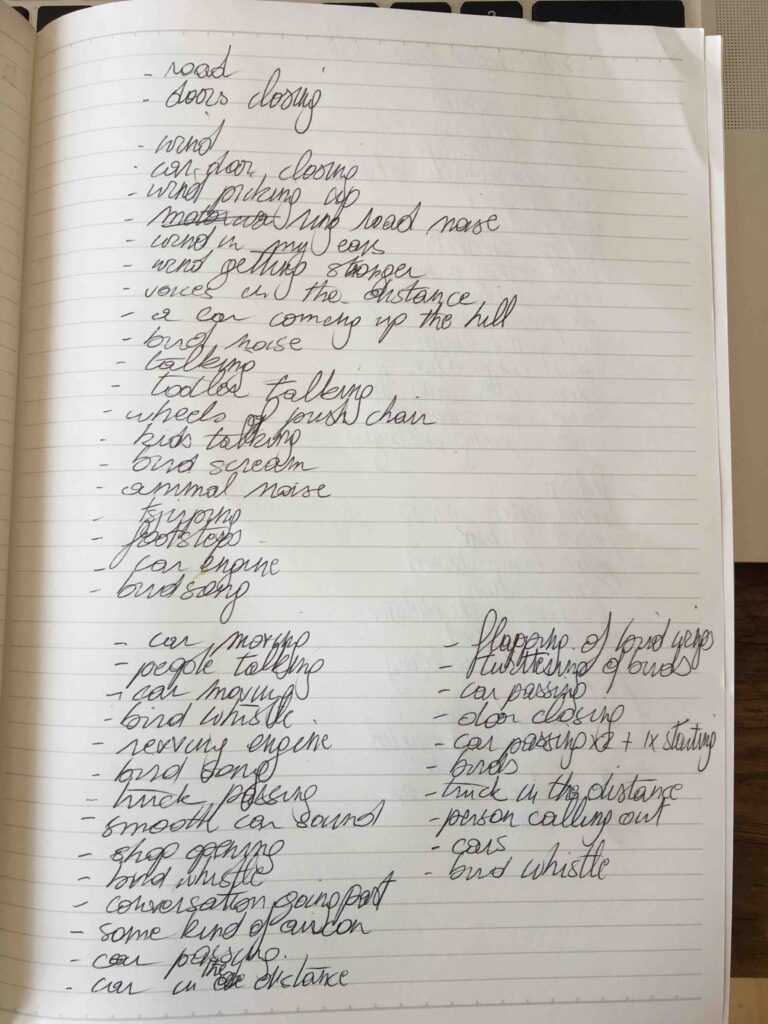 - road
- doors closing
- wind
- car door closing
- wind picking up
- ring road noise
- wind in my ears
- wind getting stronger
- voices in the distance
- a car coming up the hill
- bird noise
- talking
- toddler talking
- wheels of push chair
- kids talking
- bird scream
- animal noise
- tsjirping
- footsteps
- car engine
- birdsong
- car moving
- people talking
- car moving
- bird whistle
- revving engine
- bird song
- truck passing
- smooth car sound
- shop opening
- bird whistle
- conversation going past
- some kind of aircon
- car passing.
- car in the distance
- flapping of bird wings
- twittering of birds
- car passing
- door closing
- car passing x2 + 1x starting
- birds
- truck in the distance
- person calling out
- cars
- bird whistle